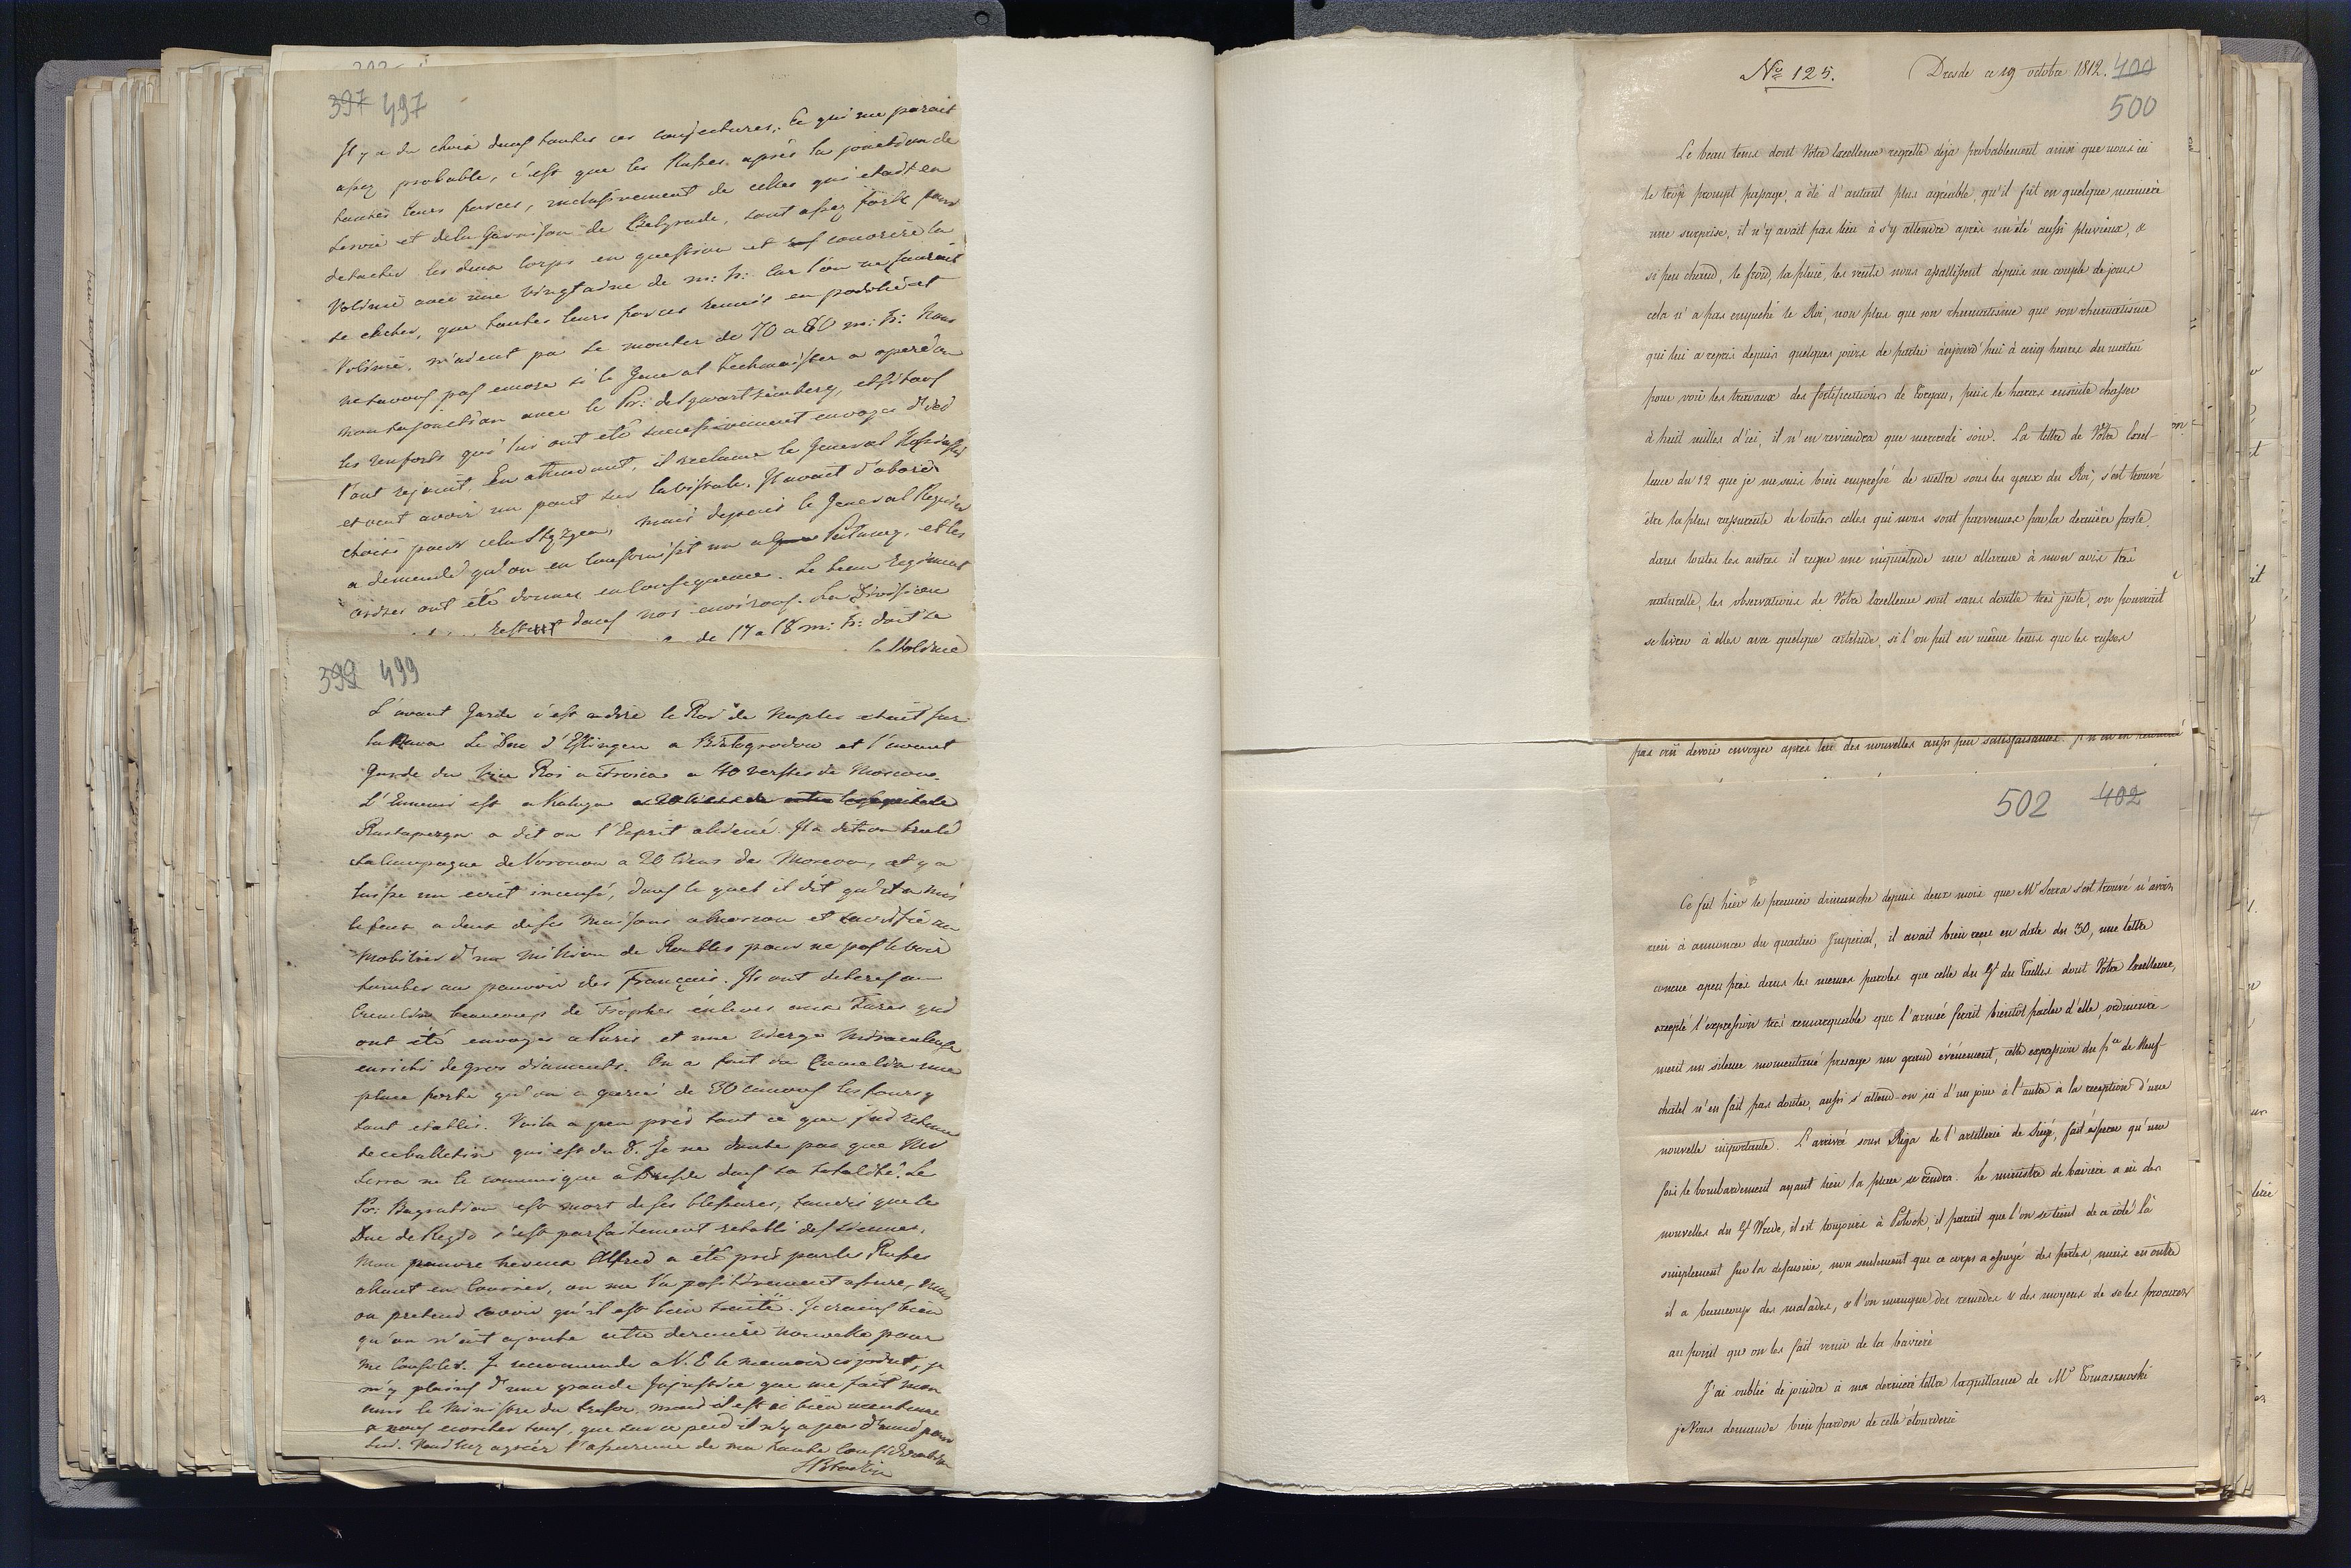 397 497
Il y a du choix dans toutes ces conjectures; Ce qui me parait
assez probable, c'est que les Russes après la jonction de
toutes leurs forces, inclusivement de celles qui etait en
Servie et de la Garnison de Belgrade, sont assez forts pour
detacher les deux Corps en question et couvrir la
Volinie avec une vingtaine de m: h: Car l'on ne saurait
se cacher, que toutes leurs forces reunis en podolie et
Volinie, n'aient pu se monter de 70 a 80 m: h: Nous
ne savons pas encore si le General a operé ou
non sa jonction avec le Pr: de Szwartzemberg, et si tous
les renforts qui lui ont eté successivement envoyés d'ici
l'ont rejoint. En attendant, il reclame le General Kosinski
et veut avoir un pont sur la vistule. Il avait d'abord
choisi pour cela mais depuis le General Regnier
a demandé qu'on en construisit un a Pulawy, et les
ordres ont été donnés en consequence. Le beau Regiment
dans nos environs. La Division
de 17 a 18 m: h: doit se
la Volinie
399 499
L'avant Garde c'est a dire le Roi de Naples etait sur
la Nara Le Duc d'Elkingen a et l'avant
Garde du Vice Roi a Troica a 40 verstes de Moscou.
L'Ennemi est a Kaluga
Rastapzyn a dit on l'Esprit aliené. Il a dit on brulé
sa Campagne de Voronow a 20 lieues de Moscou, et y a
laissé un ecrit insensé, dans le quel il dit qu'il a mis
le feux a deux de ses maisons a Moscou et sacrifié un
Mobilier d'un Million de Roubles pour ne pas le voir
tomber au pouvoir des Français. Ils ont deterré au
Cremelin beaucoup de Trophés enlevés aux Turcs qui
ont été envoyés a Paris et une vierge Miraculeuse
enrichi de gros diamants. On a fait du Cremelin une
place forte qu'on a garni de 30 canons les fours y
sont etablis. Voila a peu près tout ce que j'ai retenu
de ce bulletin qui est du 8. Je ne doute pas que Mr
Serra ne le communique a Dresde dans sa totalité. Le
Pr: Bagration est mort de ses blessures, tandis que le
Duc de Regio s'est parfaitement retabli des siennes.
Mon pauvre neveux Alfred a été pris par les Russes
allant en Courrier, on me l'a positivement assuré, mais
on pretend savoir qu'il est bien traité. Je crains bien
qu'on n'ait ajouté cette derniere nouvelle pour
me Consoler. Je recommande a V. E le memoire ci joint, je
m'y plains d'une grande Injustice que me fait mon
ami le Ministre du tresor, mais il est si bien
a nous ecorcher tous, que sur ce pied il n'y a pas d'amis pour
lui. Veuillez agréer l'assurance de ma haute Consideration
No 125. Dresde ce 19 octobre 1812. 400
500
Le beau tems dont Votre Excellence regrette déja probablement ainsi que nous ici
le trop prompt passage, a été d'autant plus agréable, qu'il fut en quelque manière
une surprise, il n'y avait pas lieu à s'y attendre après un été aussi pluvieux, &
si peu chaud, le froid, la pluie, les vents nous assaillissent depuis un couple de jours
cela n'a pas empeché le Roi, non plus que son rhumatisme que son rhumatisme
qui lui a repris depuis quelques jours de partir aujourd'hui à cinq heures du matin
pour voir les travaux des fortifications de Torgau, puis le haras ensuite chasser
à huit milles d'ici, il n'en reviendra que mercredi soir. La lettre de Votre Excel-
lence du 12 que je me suis bien empressé de mettre sous les yeux du Roi, s'est trouvé
être la plus rassurante de toutes celles qui nous sont parvenues par la dernière poste,
dans toutes les autres il regne une inquiétude une allarme à mon avis très
naturelle, les observations de Votre Excellence sont sans doutte très justes, on pourrait
se livrer à elles avec quelque certitude, si l'on fut en même tems que les russes
pas crû devoir envoyer après lui des nouvelles aussi peu satisfaisantes.
502 402
Ce fut hier le premier dimanche depuis deux mois que Mr Serra s'est trouvé n'avoir
rien à annoncer du quartier Imperial, il avait bien reçu en date du 30, une lettre
concue apeu près dans les memes paroles que celle du Gl du Taillis dont Votre Excellence,
excepté l'expression très remarquable que l'armée ferait bientôt parler d'elle, ordinaire-
ment un silence momentané presage un grand événement, cette expression du pce de Neuf-
chatel n'en fait pas douter, aussi s'attend-on ici d'un jour à l'autre à la reception d'une
nouvelle importante. L'arrivée sous Riga de l'artillerie de Siège, fait éspérer qu'une
fois le bombardement ayant lieu la place se rendra. Le ministre de bavière a eu des
nouvelles du Gl Wrede, il est toujours à Polock, il parait que l'on se tient de ce coté là
simplement sur la defensive, non seulement que ce corps a essuyé des pertes, mais en outre
il a beaucoup des malades, & l'on manque des remedes & des moyens de se les procurer
au point qu'on les fait venir de la bavière
J'ai oublié de joindre à ma derniere lettre la quittance de Mr Tomaszewski
je Vous demande bien pardon de cette étourderie